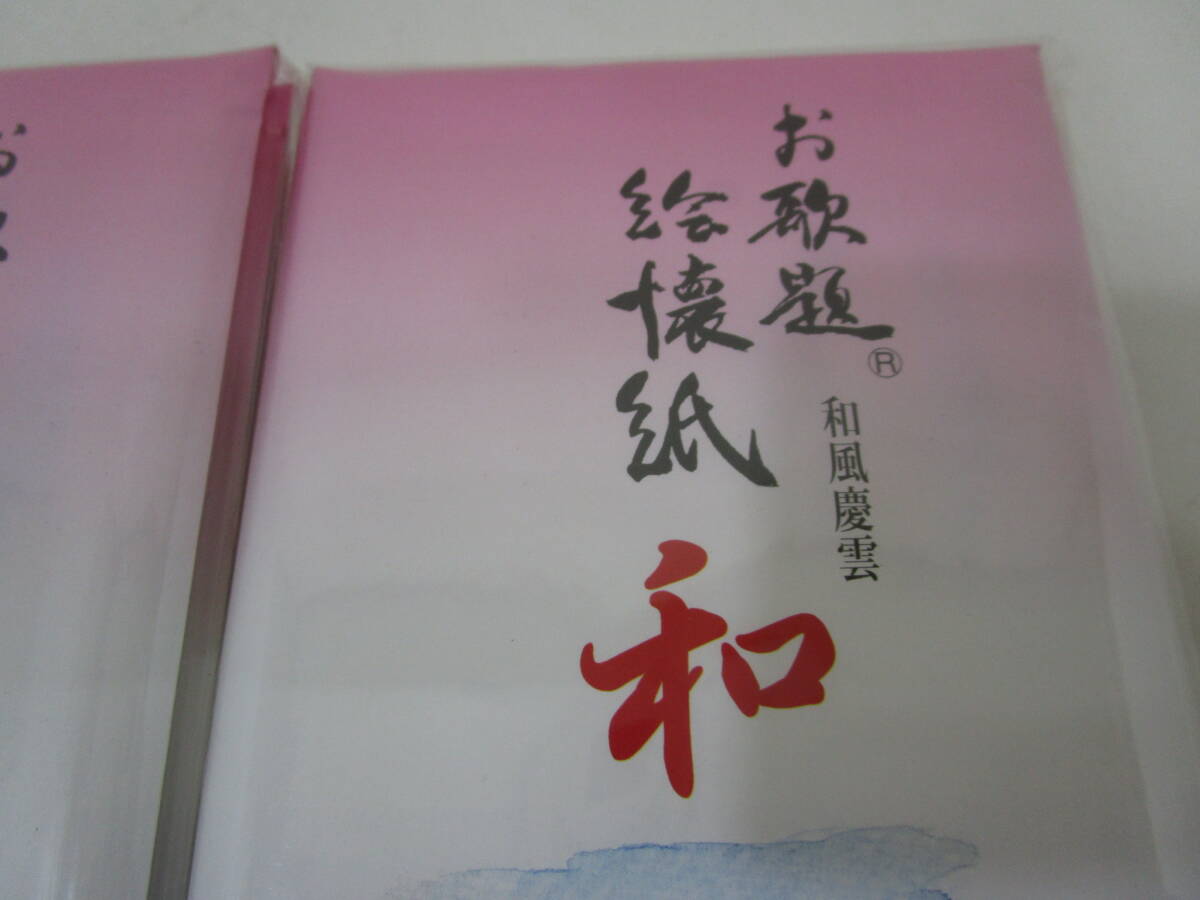 お歌題®
絵懐紙
和風慶雲
和
お